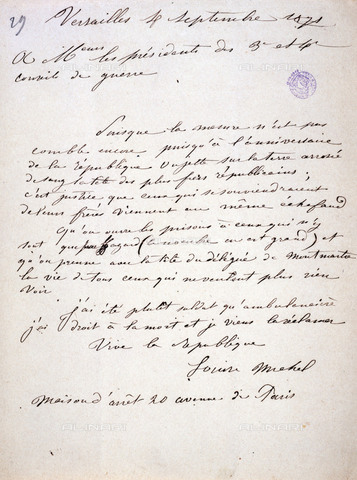 29
Versailles 4 Septembre 1871
A Mrs les présidents des 3e et 4e
conseils de guerre
Puisque la mesure n'est pas
comble encore puisqu'à l'anniversaire
de la République on jette sur la terre arrosée
de sang la tête des plus fiers républicains ;
c'est justice que ceux qui se souviendraient
de leurs frères viennent au même échafaud
Qu'on ouvre les prisons à ceux qui n'y
sont que par hazard (le nombre en est grand) et
qu'on prenne avec la tête du délégué de Montmartre
la vie de tous ceux qui ne veulent plus rien
voir
j'ai été plutôt soldat qu'ambulancière
j'ai droit à la mort et je viens la réclamer
Vive la République
Louise Michel
Maison d'arrêt 20 avenue de Paris
ALINARI